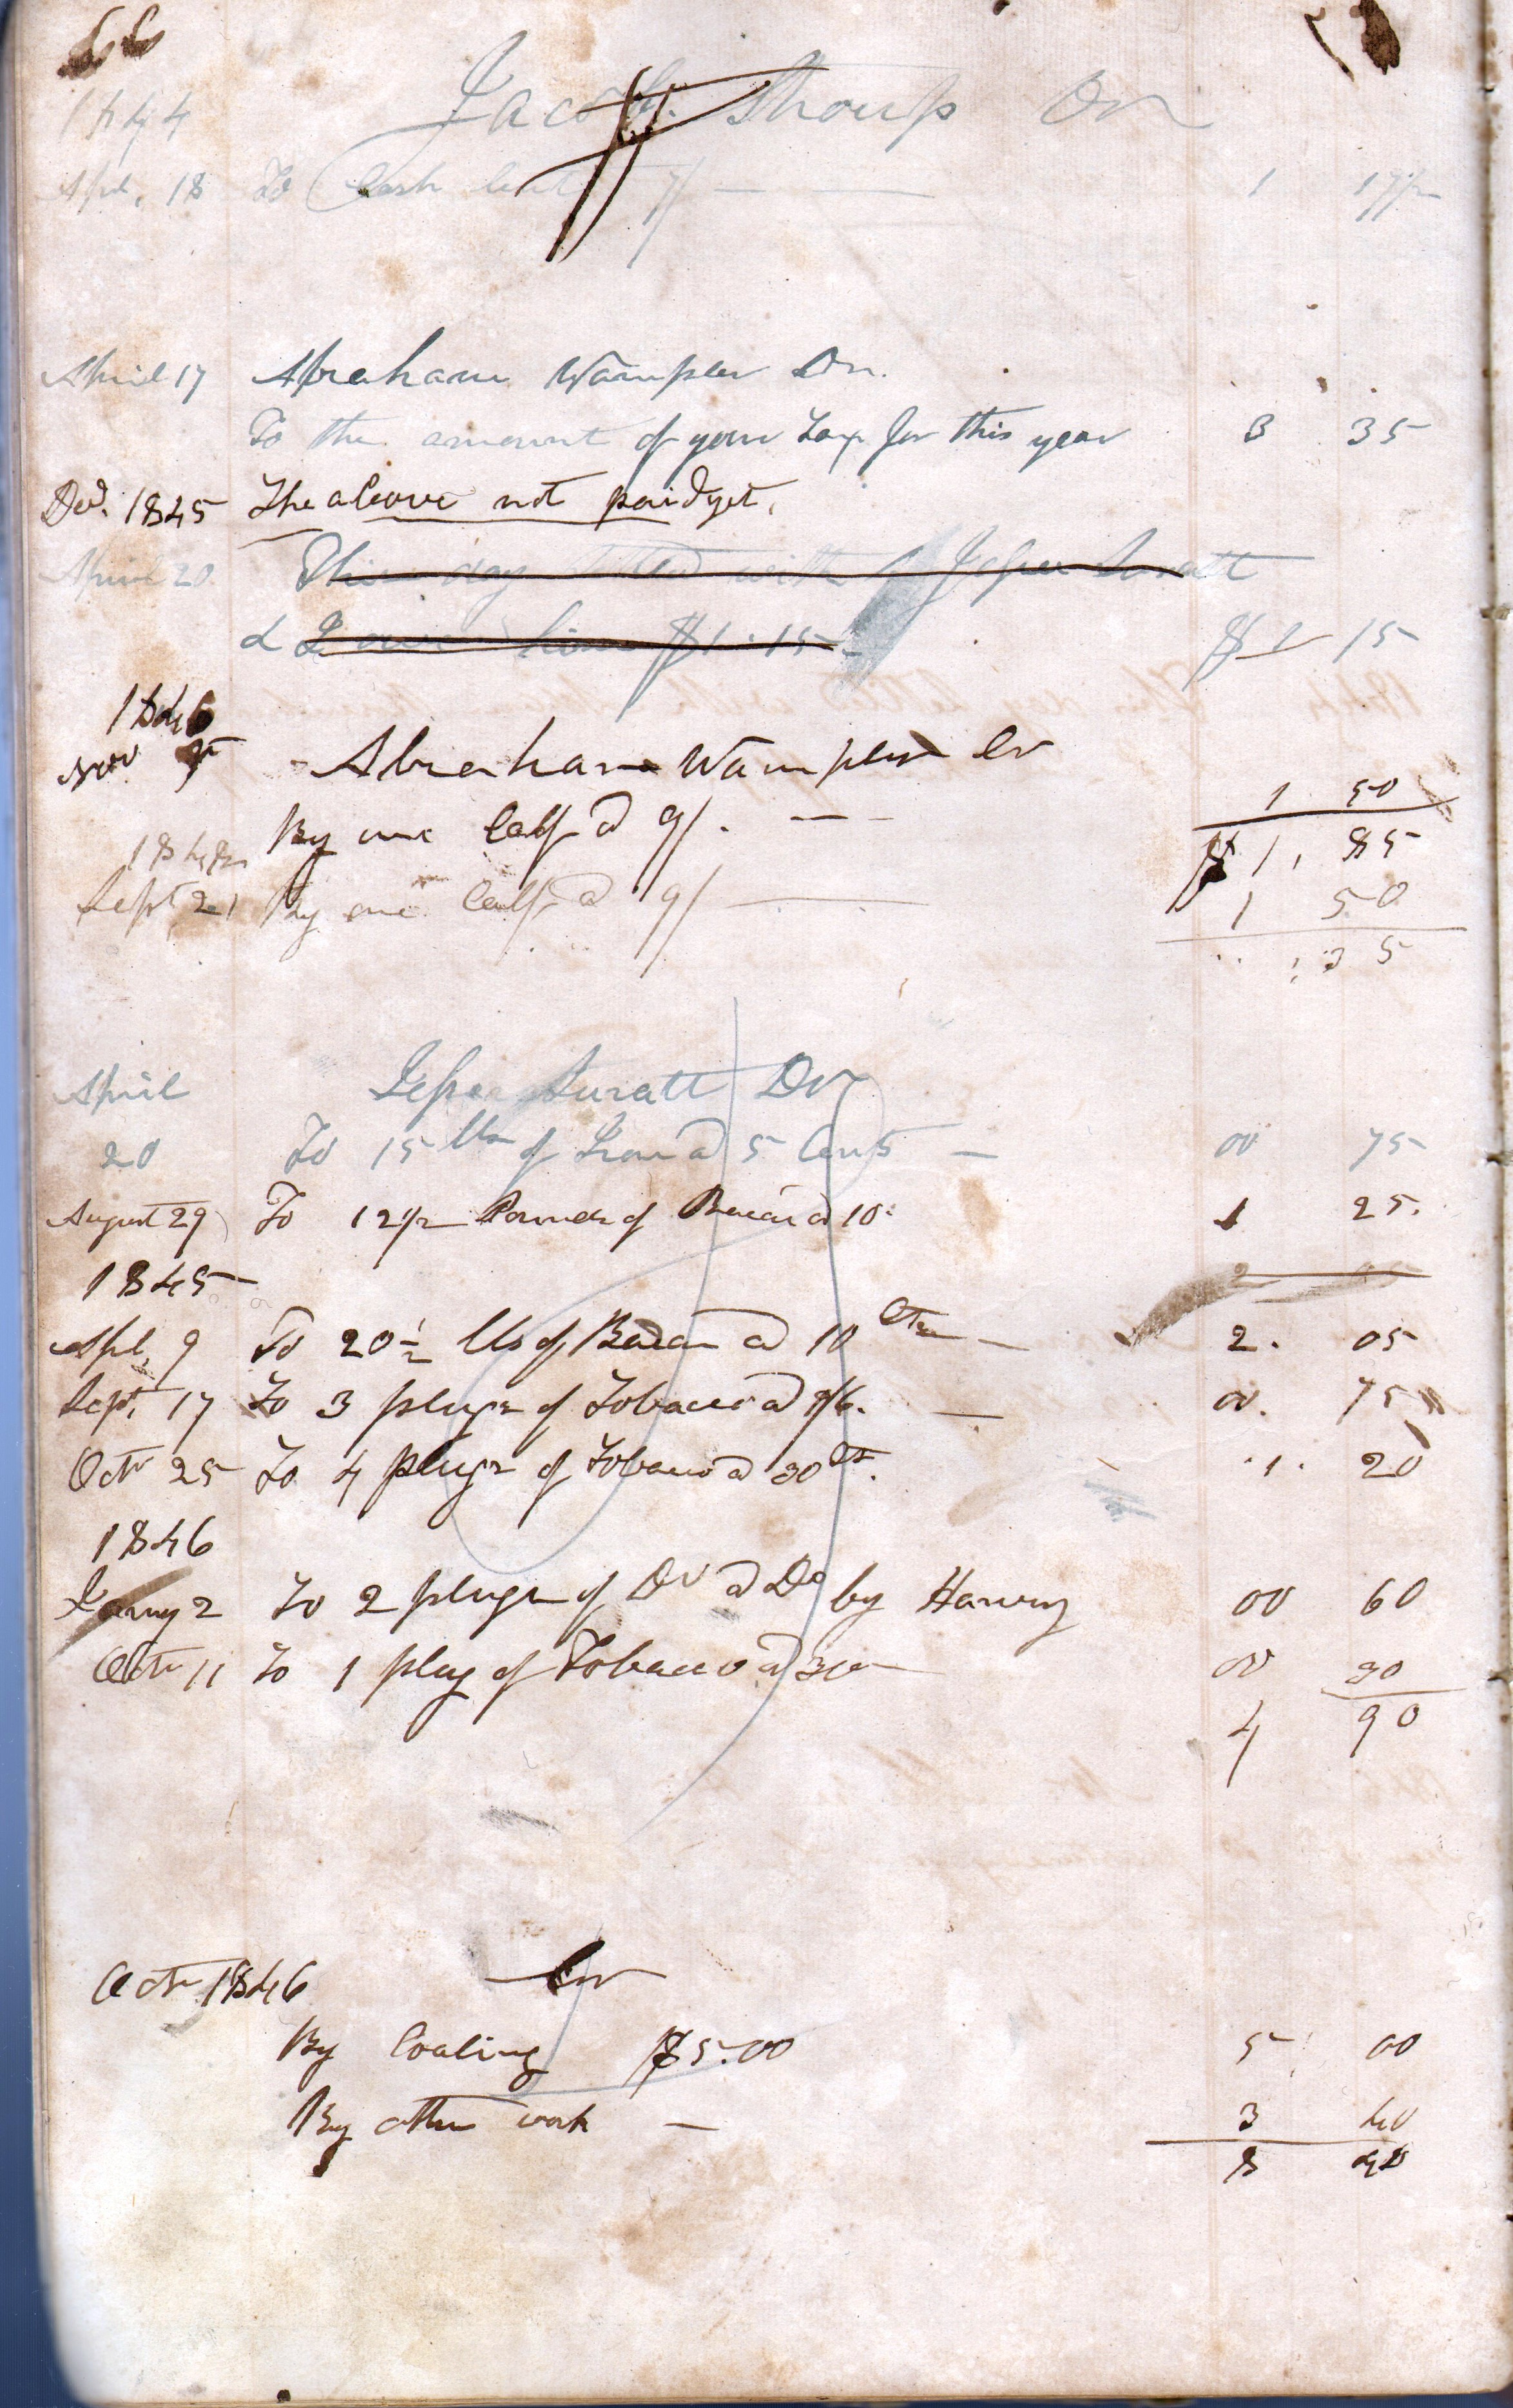 66
1844 Jacob Shoup Dr
Apl. 18 To Cash lent 7/ — — 1 17 1/2
April 17 Abraham Wampler Dr.
To the amount of your Tax for this year 3 35
Decr. 1845 The above not paid yet.
April 20 This day settled with Jesse Suratt
& I owe him $1.15 $1 15
1846
Nov Abraham Wampler Cr
By one Calf @ 9/. — — 1 50
$1, 85
Sept 21 By one Calf @ 9/ — 1 50
35
April Jesse Suratt Dr
20 To 15 lbs of Iron @ 5 Cents — 00 75
August 29 To 12 1/2 Pounds of Bacon @ 10 1 25.
1845
Apl. 9 To 20 1/2 lbs of Bacon @ 10 Cts — 2. 05
Sept. 17 To 3 plugs of Tobacco @ 1/6. — 00. 75
Octr 25 To 4 plugs of Tobacco @ 30 Cts. 1. 20
1846
Jany 2 To 2 plugs of Do @ Do by Harvey 00 60
Octr 11 To 1 plug of Tobacco @ 30 00 30
4 90
Octr 1846 Cr
By Coaling $5.00 5 00
By other work — 3 40
8 40